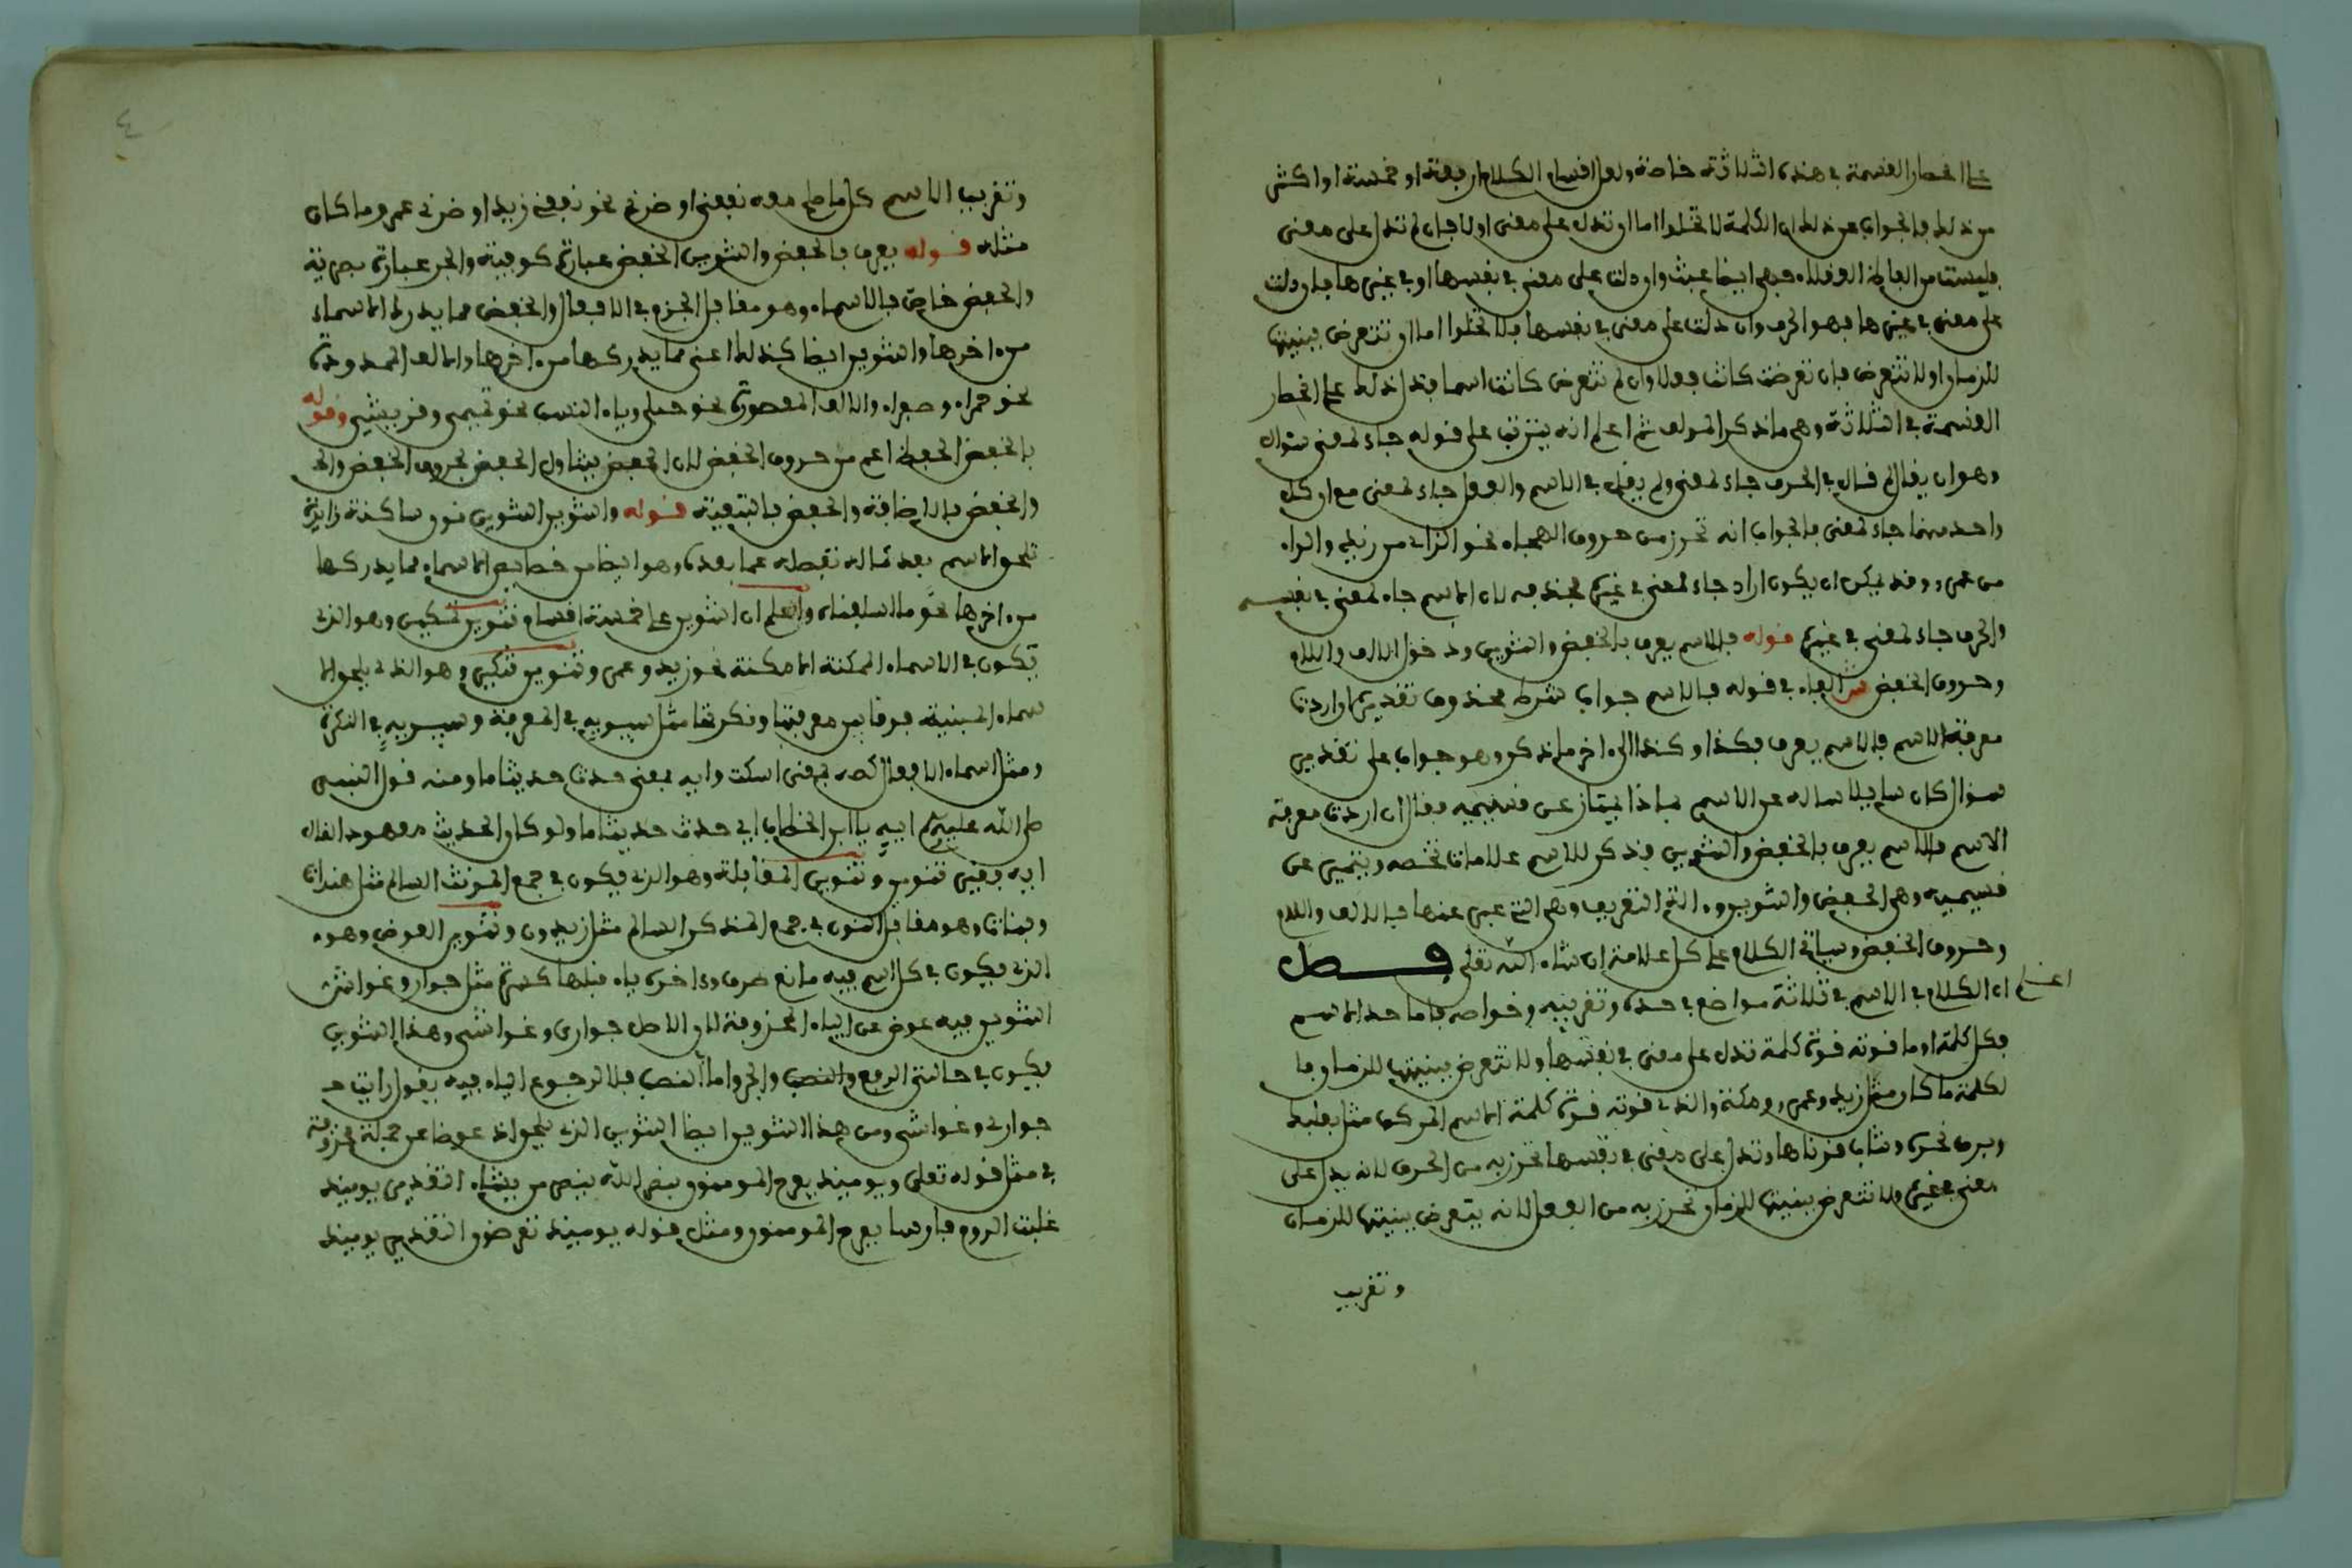 على انحصار القسمة في هذه الثلاثة خاصة ولعل اقسام الكلام اربعة او خمسة او اكثر
من ذلك فالجواب عن ذلك ان الكلمة لا تخلوا اما ان تدل على معنى او لا فان لم تدل على معنى
فليست من الفاظ العقلاء فهي ايضا عبث وان دلت على معنى في نفسها او في غيرها فان دلت
على معنى في غيرها فهو الحرف وان دلت على معنى في نفسها فلا تخلوا اما ان تتعرض ببنيتها
للزمان او لا تتعرض فان تعرضت كانت فعلا وان لم تتعرض كانت اسما فدل ذلك على انحصار
القسمة في الثلاثة وهي ما ذكر المولف ثم اعلم انه يترتب على قوله جاء لمعنى سوال
وهو ان يقال لم قال في الحرف جاء لمعنى ولم يقل في الاسم والفعل جاء لمعنى مع ان كل
واحد منهما جاء لمعنى فالجواب انه تحرز من حروف الهجاء نحو الزاي من زيد والراء
من عمرو وقد يمكن ان يكون اراد جاء لمعنى في غيره فحذفه لان الاسم جاء لمعنى في نفسه
والحرف جاء لمعنى في غيره قوله فالاسم يعرف بالخفض والتنوين ودخول الالف واللام
وحروف الخفض ش الفاء في قوله فالاسم جواب شرط محذوف تقديره ان اردت
معرفة الاسم فالاسم يعرف بكذا وكذا الى اخر ما ذكر وهو جواب على تقدير
سوال كان سايلا ساله عن الاسم بماذا يمتاز عن قسيميه فقال ان اردت معرفة
الاسم فالاسم يعرف بالخفض والتنوين فذكر للاسم علامات تخصه ويتميز عن
قسيميه وهي الخفض والتنوين وءالة التعريف وهي التي عبر عنها بالالف واللام
وحروف الخفض وسياتي الكلام على كل علامة ان شاء الله تعلى فصل
اعلم ان الكلام في الاسم في ثلاثة مواضع في حده وتقريبه وخواصه فاما حد الاسم
فكل كلمة او ما قوته قوة كلمة تدل على معنى في نفسها ولا تتعرض ببنيتها للزمان فا
لكلمة ما كان مثل زيد وعمرو ومكة والذي قوته قوة كلمة الاسم المركب مثل بعلبك
وبرق نحره وشاب قرناها وتدل على معنى في نفسها تحرز به من الحرف لانه يدل على
معنى في غيره ولا تتعرض ببنيتها للزمان تحرز به من الفعل لانه يتعرض ببنيتها للزمان
وتقريب
٤
وتقريب الاسم كل ما صلح معه نفعني او ضرني نحو نفعني زيد او ضرني عمرو وما كان
مثله قوله يعرف بالخفض والتنوين الخفض عبارة كوفية والجر عبارة بصرية
والخفض خاص بالاسماء وهو مقابل الجزم في الافعال والخفض مما يدرك الاسماء
من ءاخرها والتنوين ايضا كذلك اعني مما يدركها من ءاخرها والالف الممدودة
نحو حمراء وصفراء والالف المقصورة نحو حبلى وياء النسب نحو تميمي وقريشي وقوله
بالخفض الخفض اعم من حروف الخفض لان الخفض يتناول الخفض بحروف الخفض والخ
والخفض بالاضافة والخفض بالتبعية قوله والتنوين التنوين نون ساكنة زايدة
تلحق الاسم بعد كماله تفصله عما بعده وهو ايضا من خصايص الاسماء مما يدركها
من ءاخرها نحو ما اسلفناه واعلم ان التنوين على خمسة اقسام تنوين تمكين وهو الذي
يكون في الاسماء المتمكنة الامكنة نحو زيد وعمرو وتنوين تنكير وهو الذي يلحق الا
سماء المبنية فرقا بين معرفتها ونكرتها مثل سيبويه في المعرفة وسيبويه في النكرة
ومثل اسماء الافعال كصه بمعنى اسكت وايه بمعنى حدث حديثا ما ومنه قول النبي
صلى الله عليه وسلم ايه يا ابن الخطاب اي حدث حديثا ما ولو كان الحديث معهود لقال
ايه بغير تنوين وتنوين المقابلة وهو الذي يكون في جمع المونث السالم مثل هندات
وبنات وهو مقابل النون في جمع المذكر السالم مثل زيدون وتنوين العوض وهو
الذي يكون في كل اسم فيه مانع صرف وءاخره ياء قبلها كسرة مثل جوار وغواش
التنوين فيه عوض عن الياء المحذوفة لان الاصل جواري وغواشي وهذا التنوين
يكون في حالتي الرفع والنصب والجر واما النصب فلا لرجوع الياء فيه يقول رايت
جواري وغواشي ومن هذا التنوين ايضا التنوين الذي يلحق اذ عوضا عن جملة محذوفة
في مثل قوله تعلى ويوميذ يفرح المومنون بنصر الله ينصر من يشاء التقدير يوميذ
غلبت الروم فارسا يفرح المومنون ومثل قوله يوميذ تعرضون التقدير يوميذ